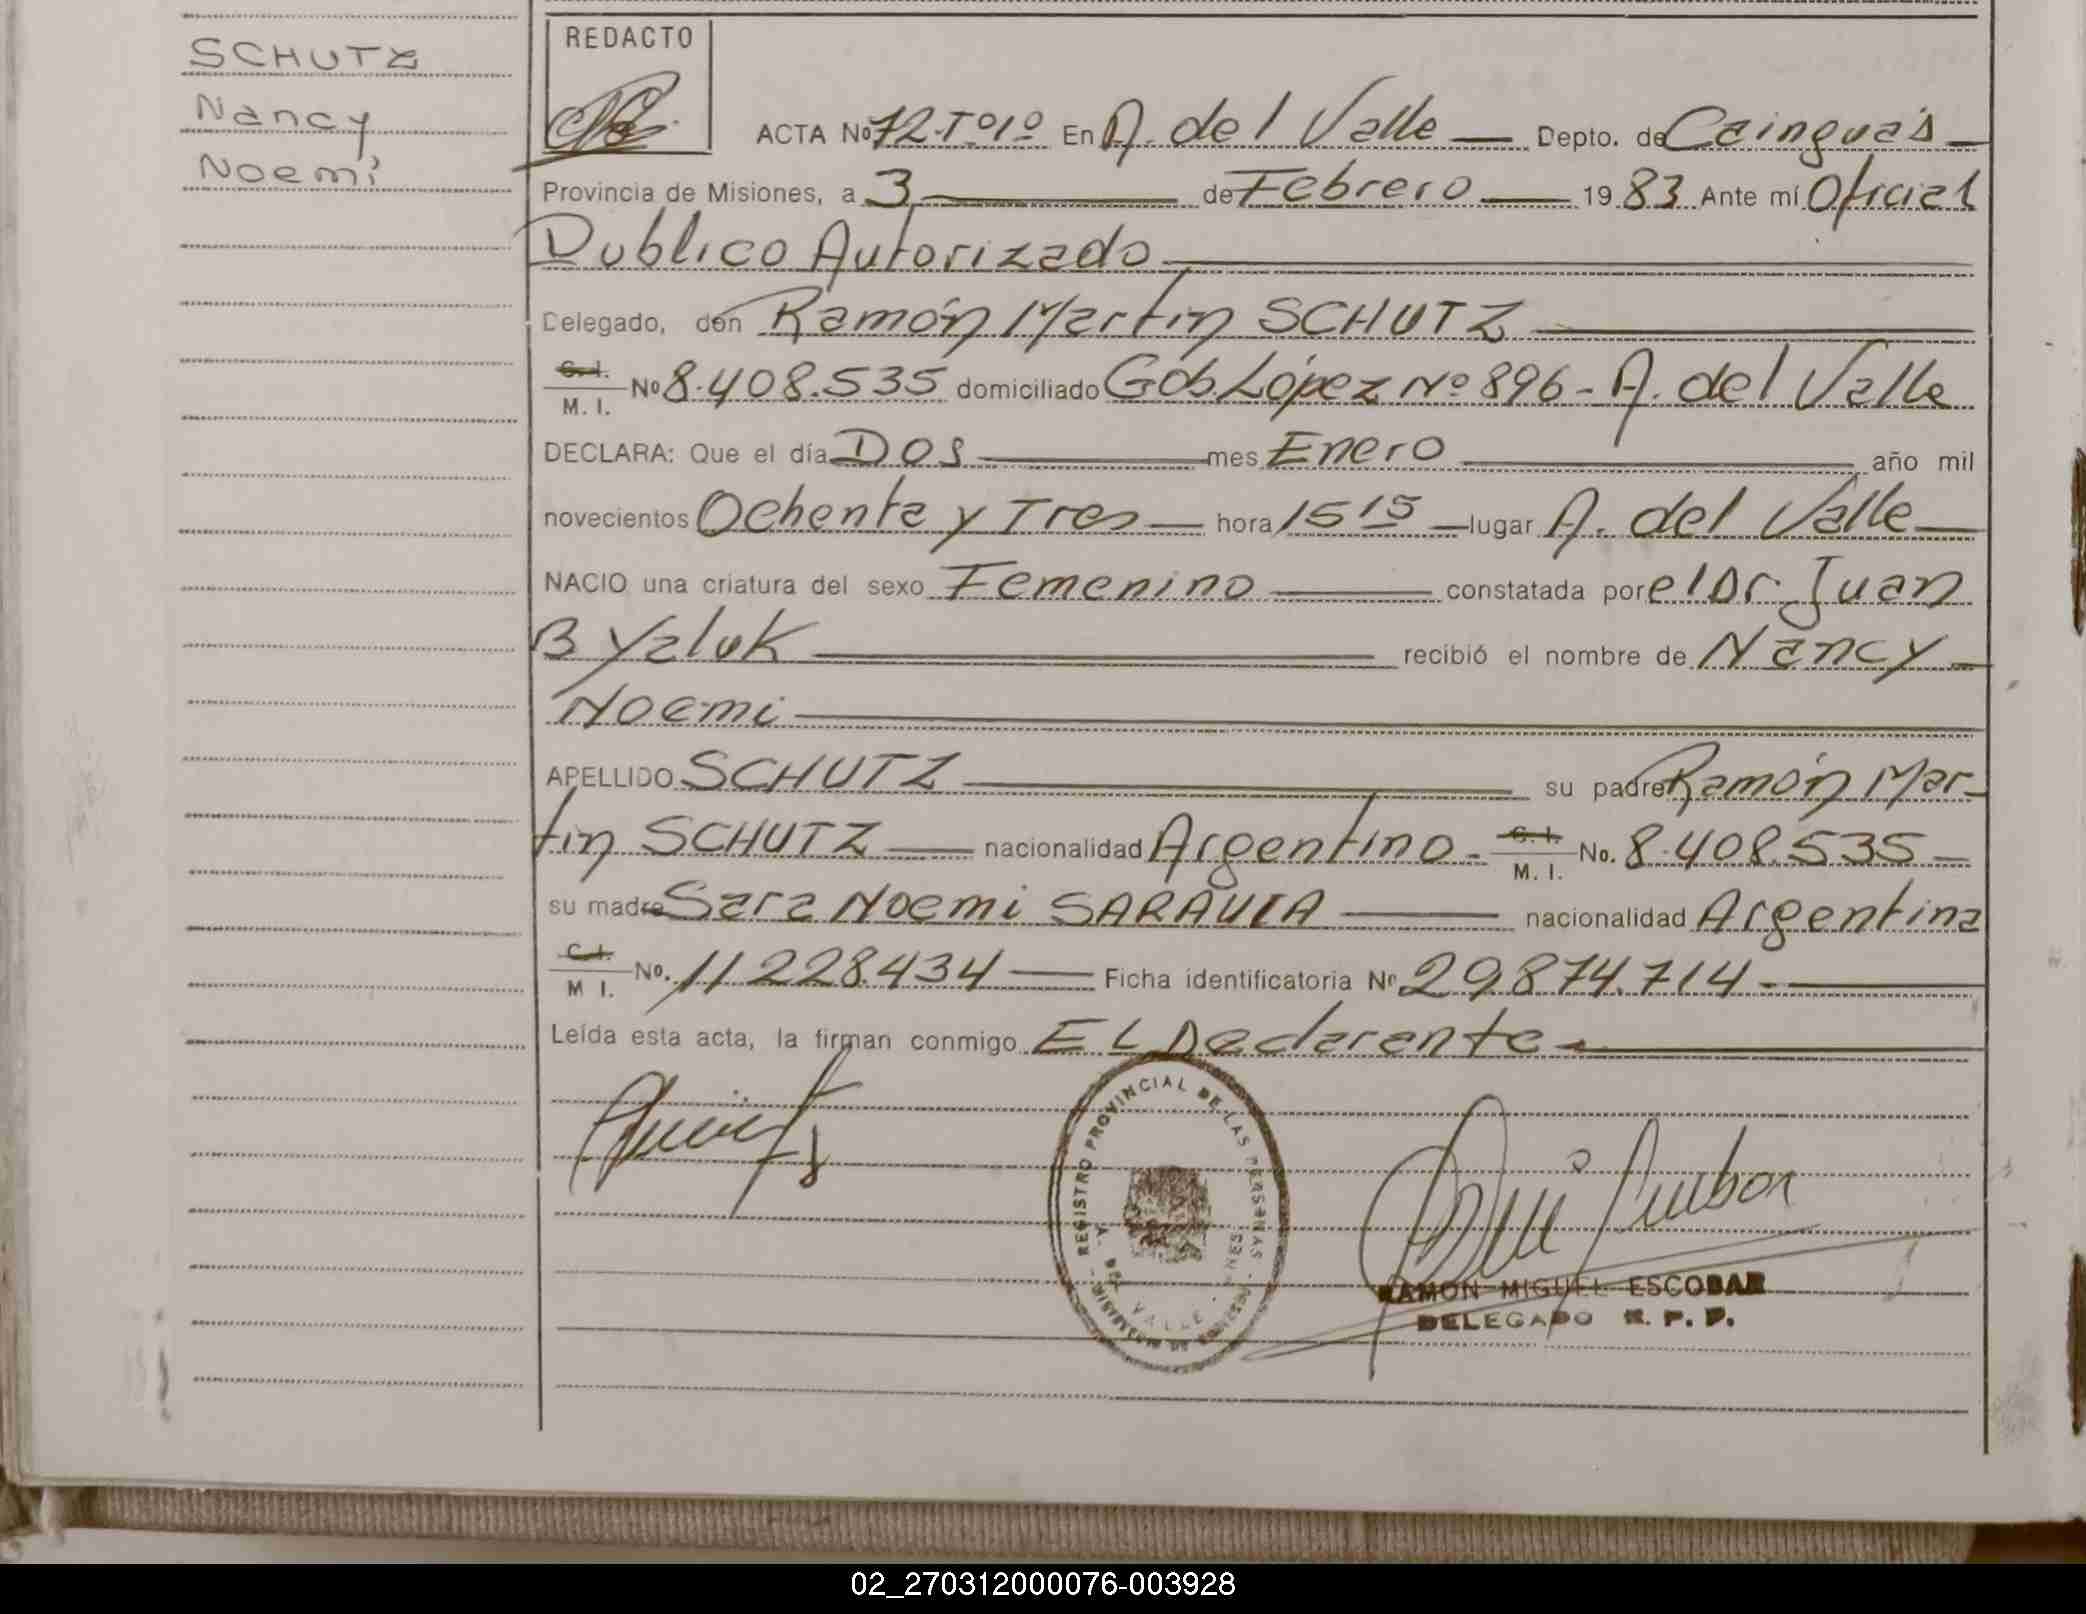 SCHUTZ
Nancy
Noemí
REDACTO
ACTA Nº 72-Tº1º En A. del Valle — Depto. de Cainguás —
Provincia de Misiones, a 3 — de Febrero — 1983 Ante mí Oficial
Publico Autorizado —
Delegado, don Ramón Martin SCHUTZ —
C. I.
M. I. Nº 8.408.535 domiciliado Gob. López Nº 896 - A. del Valle
DECLARA: Que el día DOS — mes Enero — año mil
novecientos Ochenta y Tres — hora 15 15 — lugar A. del Valle —
NACIO una criatura del sexo Femenino — constatada por el Dr. Juan
B Yaluk — recibió el nombre de Nancy —
Noemi —
APELLIDO SCHUTZ — su padre Ramón Mar-
tin SCHUTZ — nacionalidad Argentino - C. I. M. I. No. 8.408.535 —
su madre Sara Noemi SARAVIA — nacionalidad Argentina
C. I.
M I. No. 11.228.434 — Ficha identificatoria Nº 29.874.714 - —
Leída esta acta, la firman conmigo EL Declarante - —
REGISTRO PROVINCIAL DE LAS PERSONAS
A. DEL VALLE
RAMON MIGUEL ESCOBAR
DELEGADO R. P. P.
02_270312000076-003928